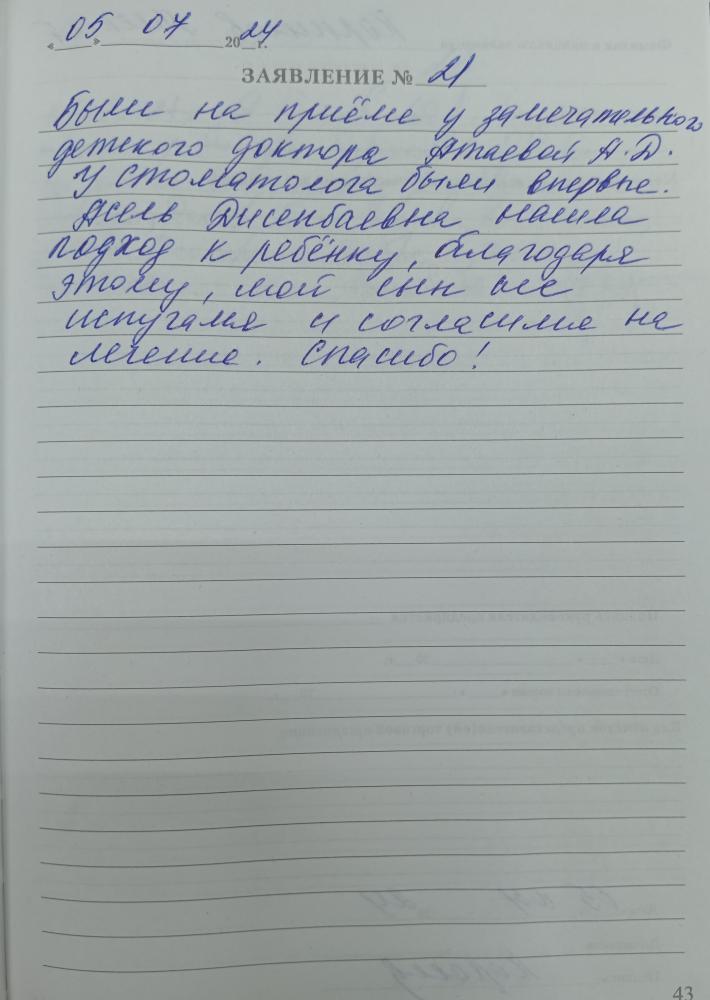 «05» 07 2024 г.
ЗАЯВЛЕНИЕ № 21
Были на приёме у замечательного
детского доктора Атаевой А.Д.
У стоматолога были впервые.
Асель Дисенбаевна нашла
подход к ребёнку, благодаря
этому, мой сын не
испугался и согласился на
лечение. Спасибо!
43